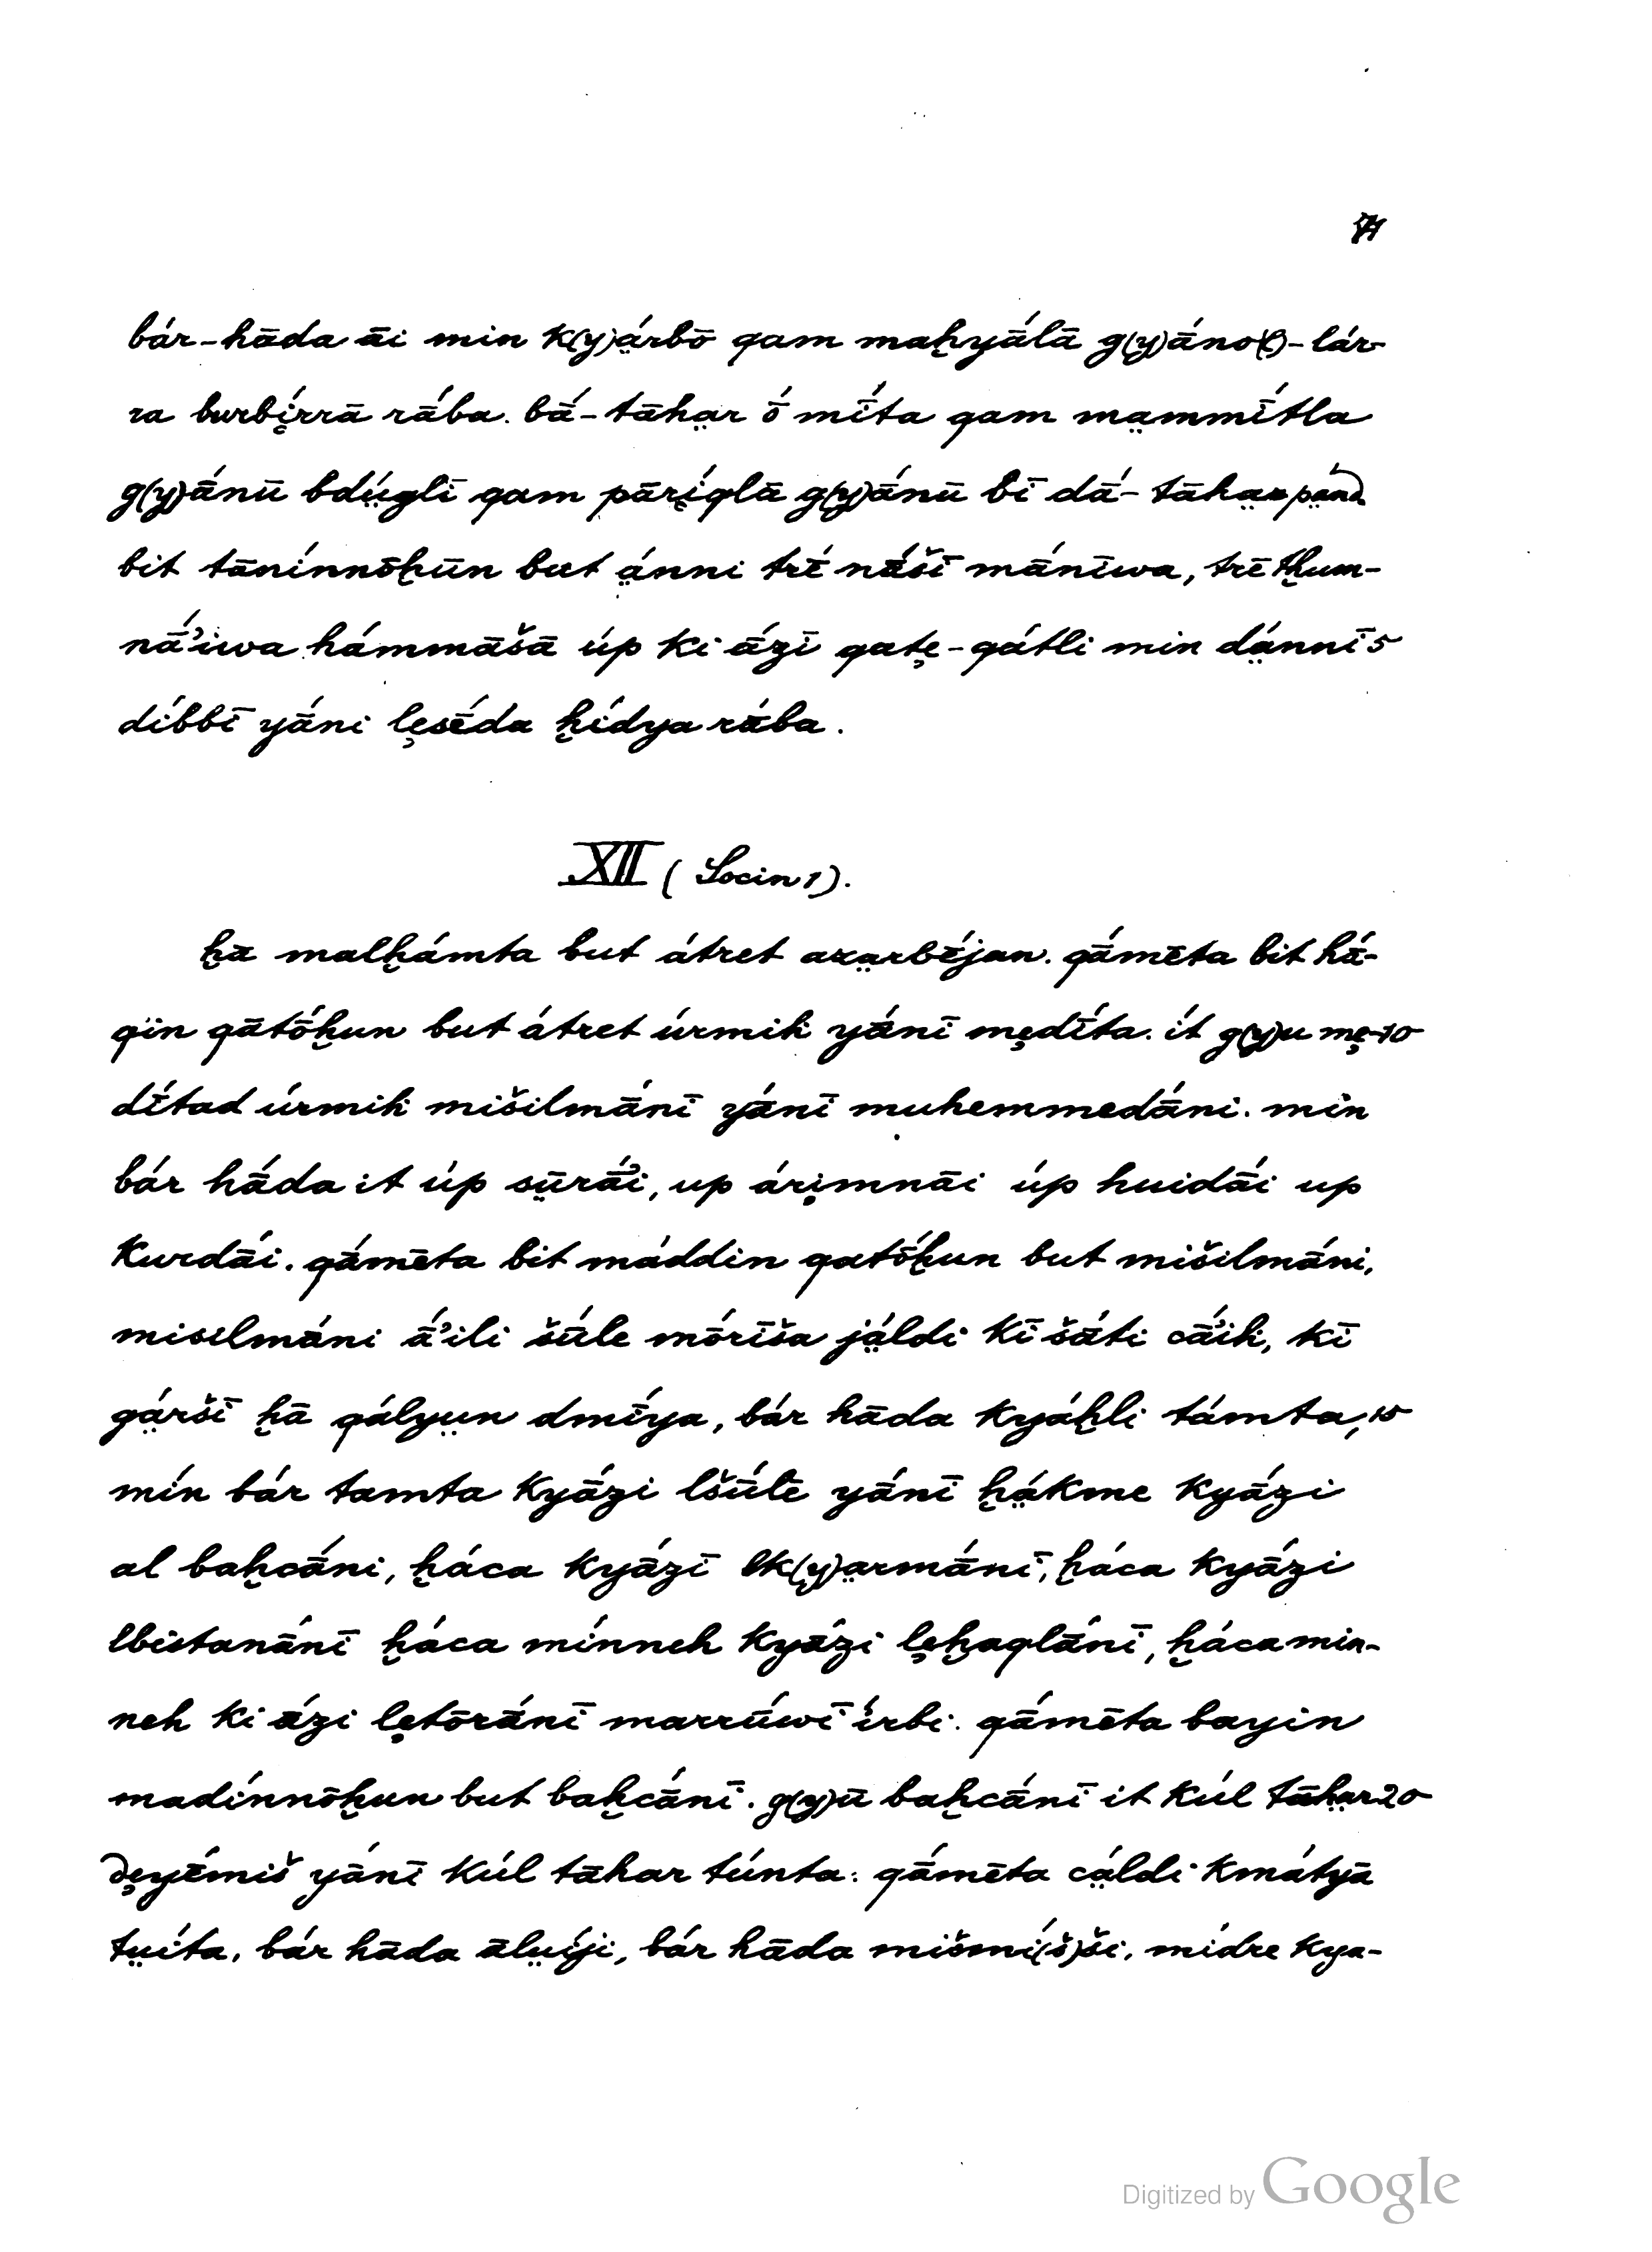 71
bár-hāda āi min k(y)a̤rbō qam maḫyā́lā g(y)āno(ḫ)-lár-
ra burbí̤rrā rā́ba. bā́-tāha̤r ō mī́ta qam ma̤mmī́tla
g(y)ā́nū bdṳ́glī qam pārí̤qlā g(y)ā́nū bī dā́-tāha̤r pa̤nd
bit tānínnōḫūn but a̤nni trḗ nā́šī mā́nīwa, trē tḫum-
nā́ʾiwa hámmāšā úp ki ā́zī qatę-qátli min dá̤nnī 5
díbbī yā́ni lęsḗda ḫídya rā́ba.
XII (Socin 1).
ḫā malḫámta but átret aza̤rbḗjan. qā́mēta bit hā́-
qin qātṓḫun but átret úrmih yā́nī mędī́ta. ít g(y)u mę- 10
dī́tad úrmih mišilmā́nī yā́nī muhemmedā́ni. min
bár hā́da it úp sṳ̄rā́ʾi, up ári̤mnāi úp huidā́i up
Kurdā́i. qā́mēta bit máddin qatṓḫun but mišilmā́ni,
misilmā́ni ā́ʾili šū́le mṓrīša ja̤ldi kī šā́ti cā́ʾih, kī
ga̤ršī ḫā qályṳn dmī́ya, bár hāda kyáḫli támta, 15
mín bár tamta kyā́zi lšū́lē yā́nī ḫa̤kme kyā́zi
al baḫcā́ni, ḫáca kyā́zī lk(y)a̤rmā́nī, ḫáca kyā́zi
lbistanā́nī ḫáca mínneh kyā́zi lęḫaqlā́nī, ḫáca min-
neh ki ā́zi lętōrā́nī marrū́wī írbi. qā́mēta bayin
madínnōḫun but baḫcā́nī. g(y)ū baḫcā́nī it kúl tāha̤r 20
dęyḗmiš yā́nī kúl tāhar túnta: qā́mēta ca̤ldi kmátyā
tṳíta, bár hāda ālṳíji, bár hāda mišmí(š)ši, mídre kya-
Digitized by Google